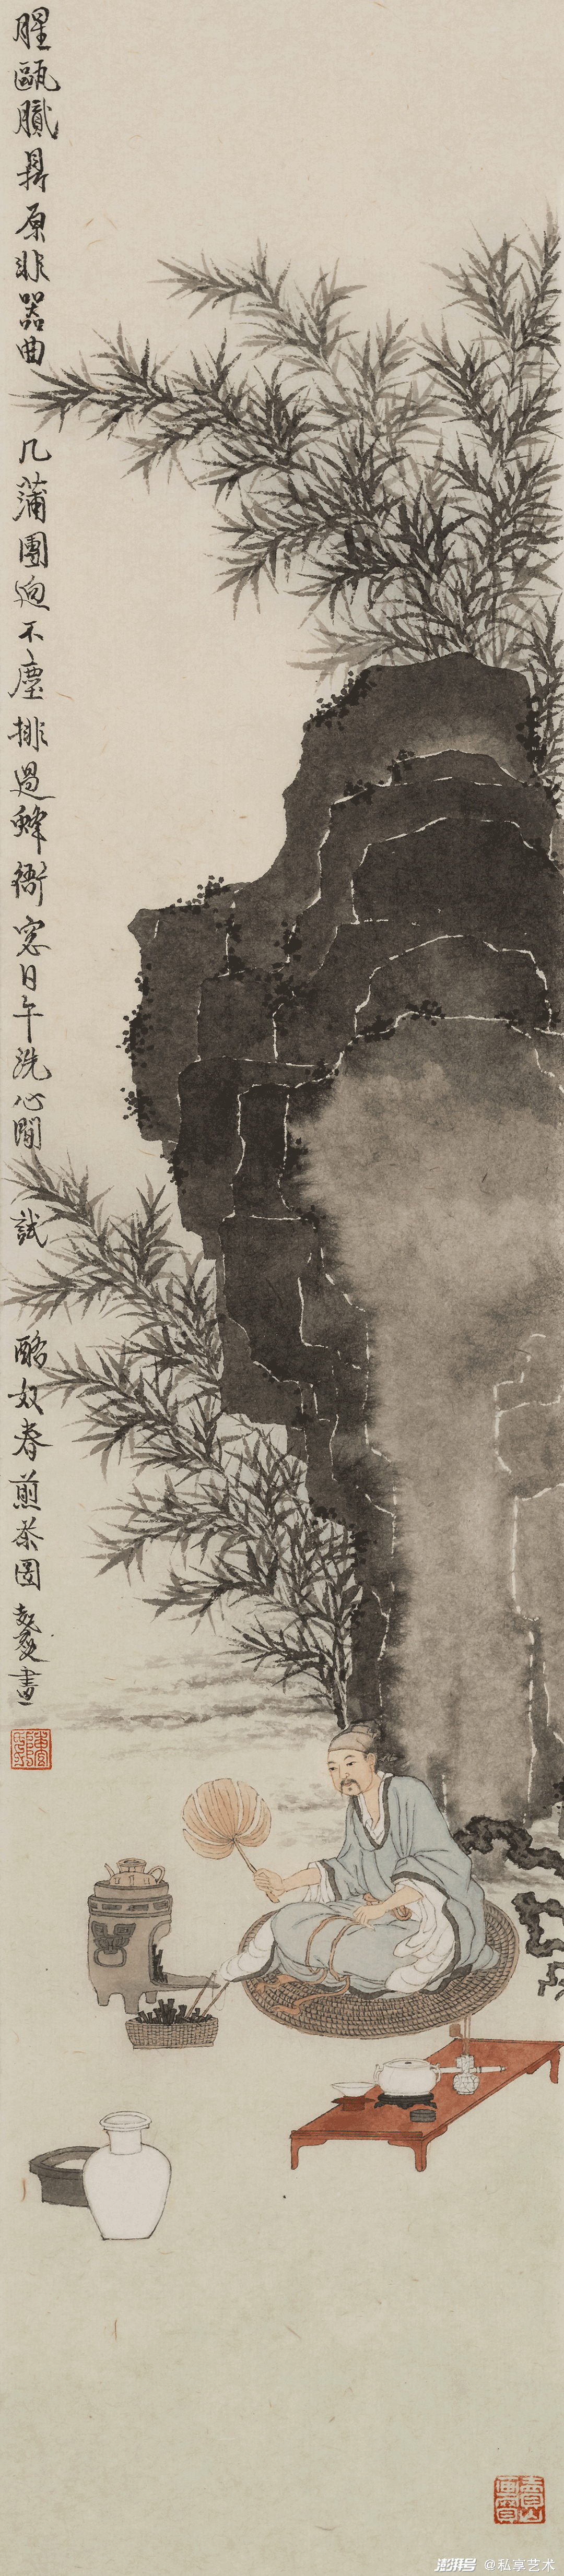 腥甌膩鼎原非器曲几蒲團迥不塵排過蜂衙窓日午洗心閒試酪奴春煎茶图
畫
澎湃号 @私享艺术